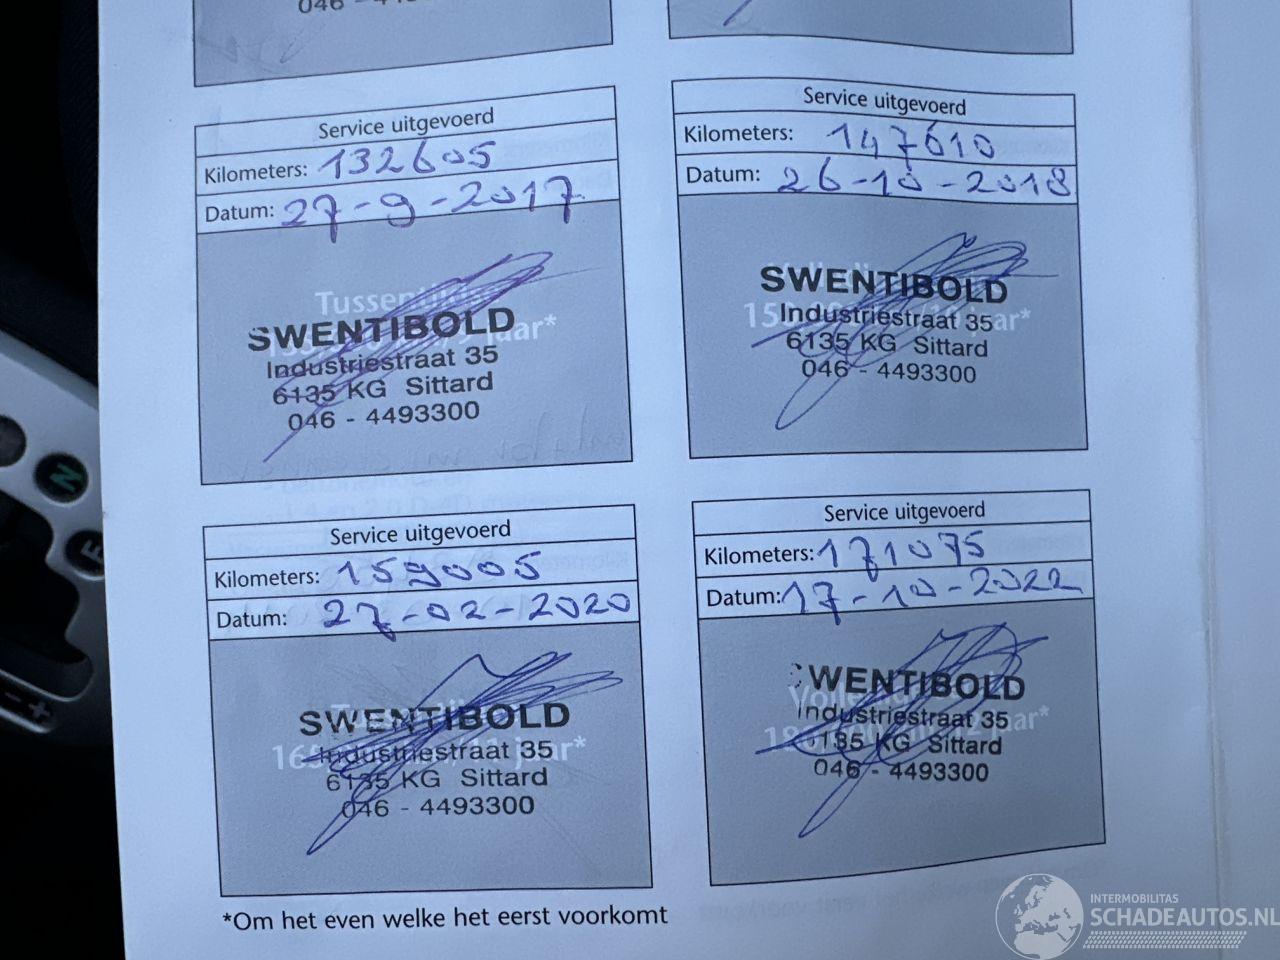 046 - 
Service uitgevoerd
Kilometers: 132605
Datum: 27-9-2017
Tussentijdse
jaar*
SWENTIBOLD
Industriestraat 35
6135 KG Sittard
046 - 4493300
Service uitgevoerd
Kilometers: 147610
Datum: 26-10-2018
SWENTIBOLD
Industriestraat 35
jaar*
6135 KG Sittard
046 - 4493300
Service uitgevoerd
Kilometers: 159005
Datum: 27-02-2020
SWENTIBOLD
Industriestraat 35
jaar*
6135 KG Sittard
046 - 4493300
Service uitgevoerd
Kilometers: 171075
Datum: 17-10-2022
WENTIBOLD
Industriestraat 35
jaar*
6135 KG Sittard
046 - 4493300
*Om het even welke het eerst voorkomt
N
E
+
INTERMOBILITAS
SCHADEAUTOS.NL